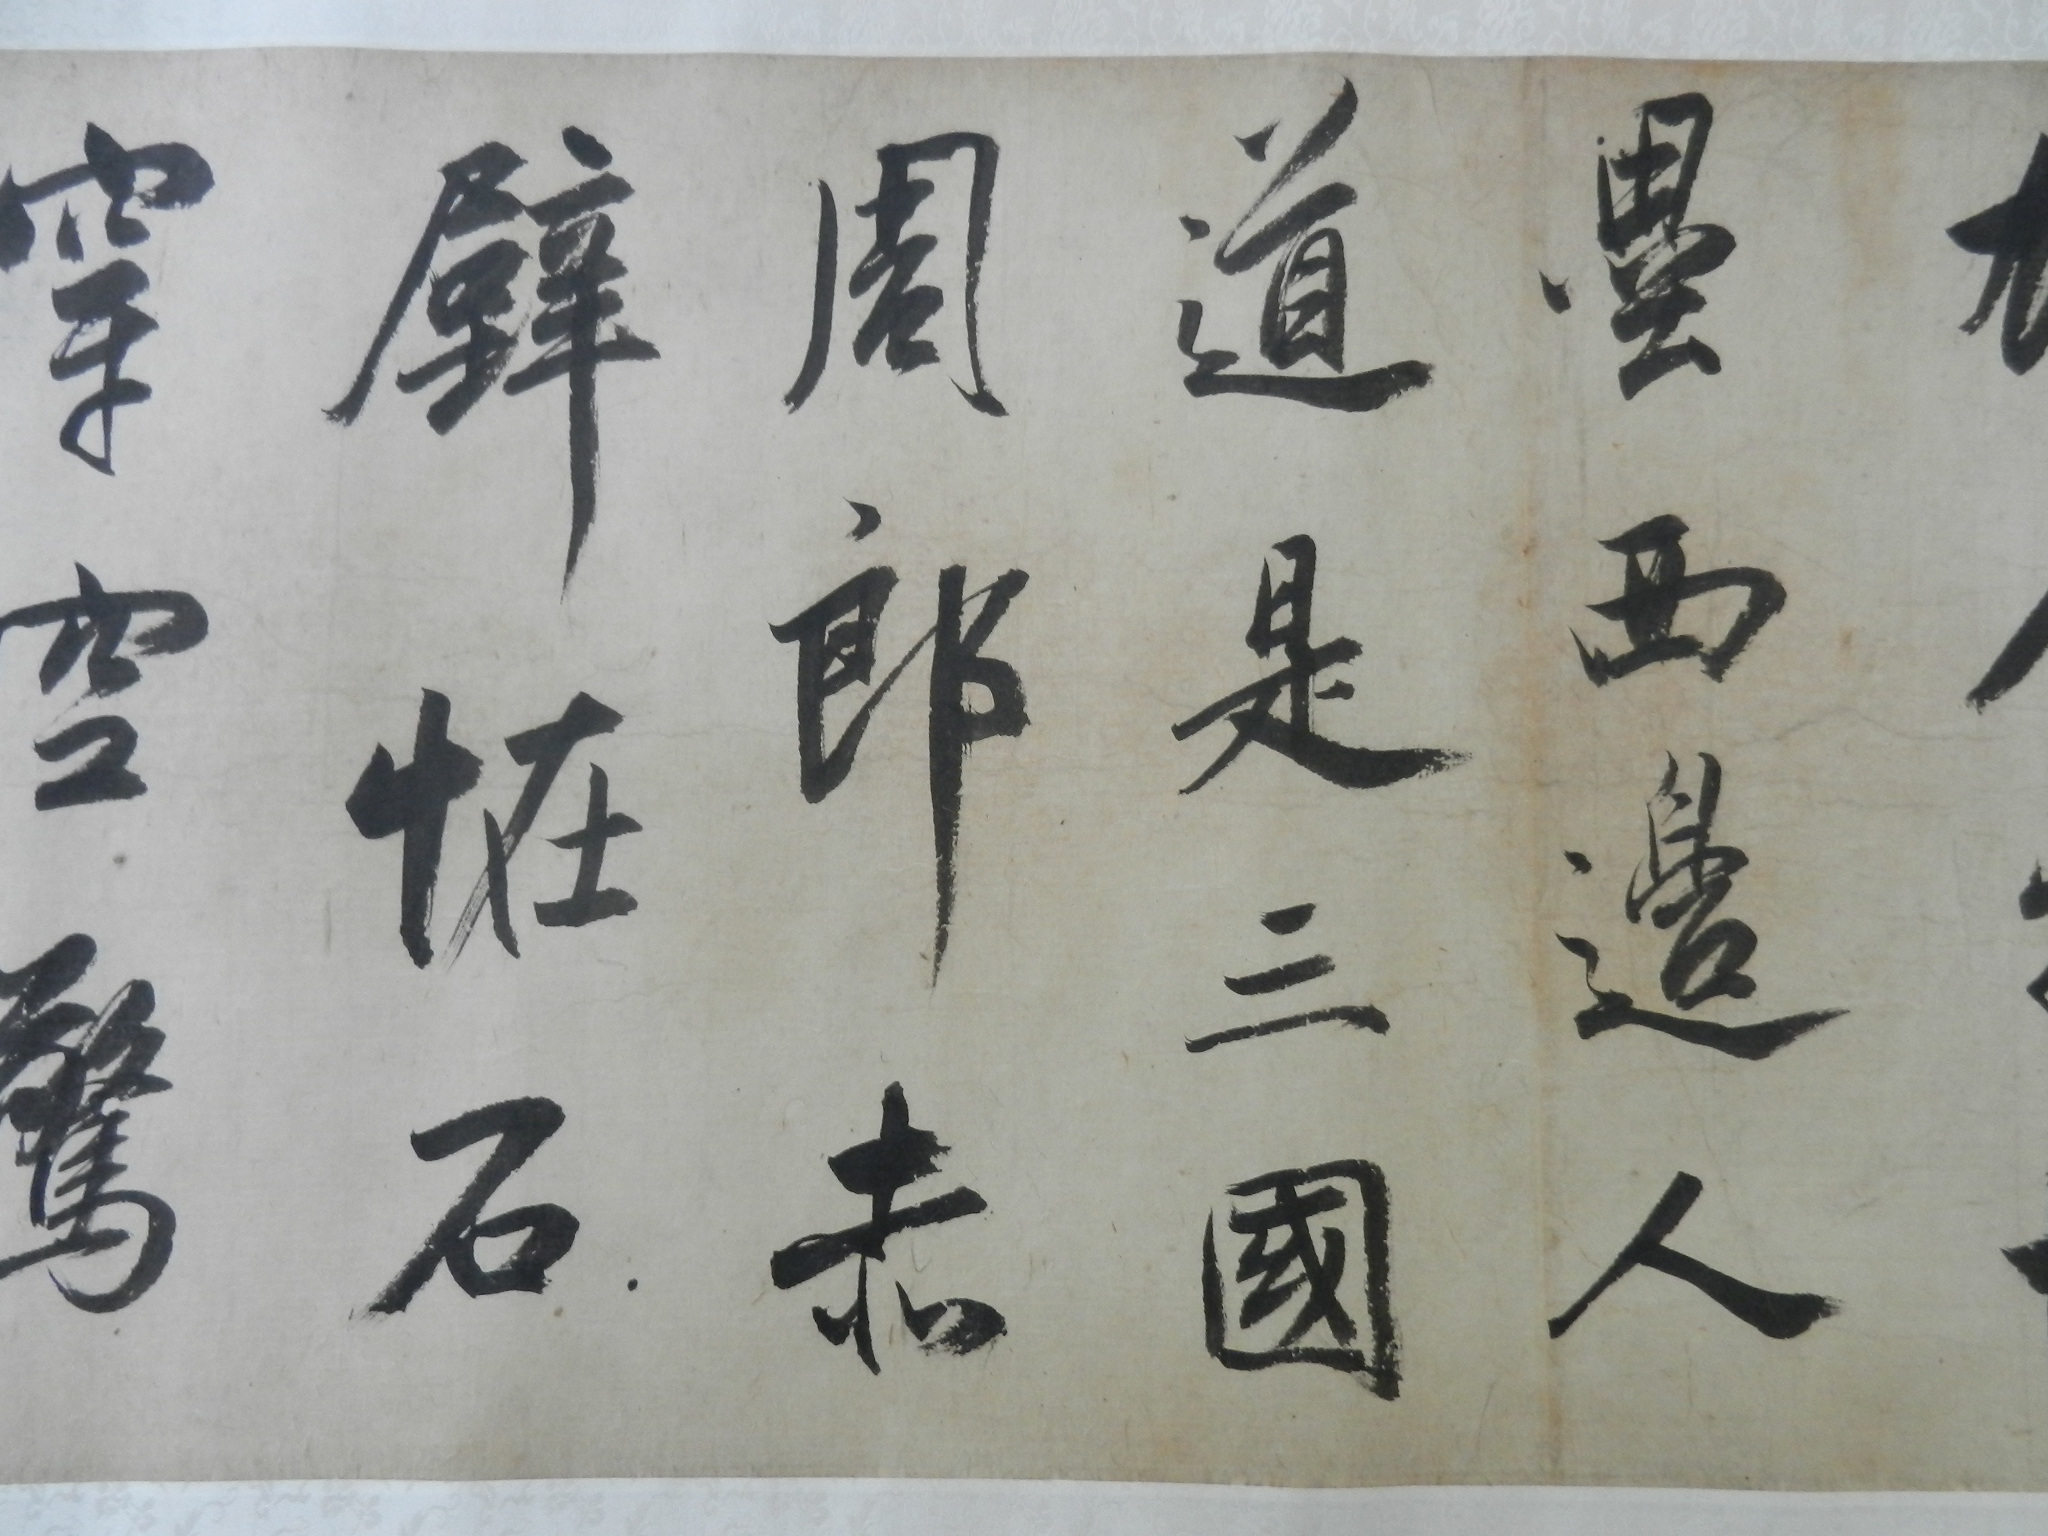 壘西邊人
道是三國
周郎赤
壁恠石
穿空驚